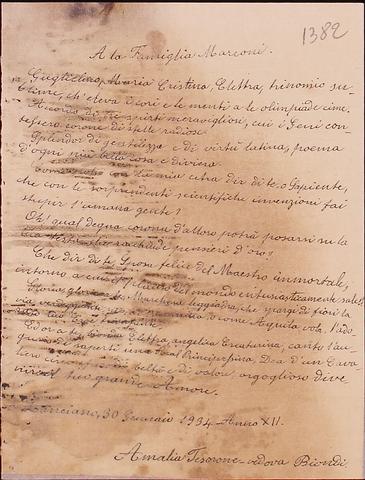 1382
A la Famiglia Marconi.
Guglielmo, Maria Cristina, Elettra, trinomio su-
blime, ch'eleva i cori e le menti a le olimpiade cime.
Accordo di tre spirti meravigliosi, cui i Geni con-
tessero corone di stelle radiose.
Splendor di gentilezza e di virtù latina, poema
d'ogni più bella cosa e divina.
con la mia cetra dir di te, o Sapiente,
che con le sorprendenti scientifiche invenzioni fai
stupir l'umana gente!
Oh! qual degna corona d'alloro potrà posarsi su la
tua testa che racchiude pensieri d'oro?
Che dir di te Sposa felice del Maestro immortale,
intorno a cui il plauso del mondo entusiasticamente sale?
Marchesa leggiadra, che spargi di fiori la
via come Aquila vola, l'ado-
Ed or a te, bionda Elettra, angelica Creaturina, canto l'au-
gurio di saperti una real Principessina, Dea d'un Cava-
liero che di beltà e di valor, orgoglioso dive
il tuo grande Amore.
Lanciano, 30 Gennaio 1934 Anno XII.
Amalia Tesorone vedova Biondi